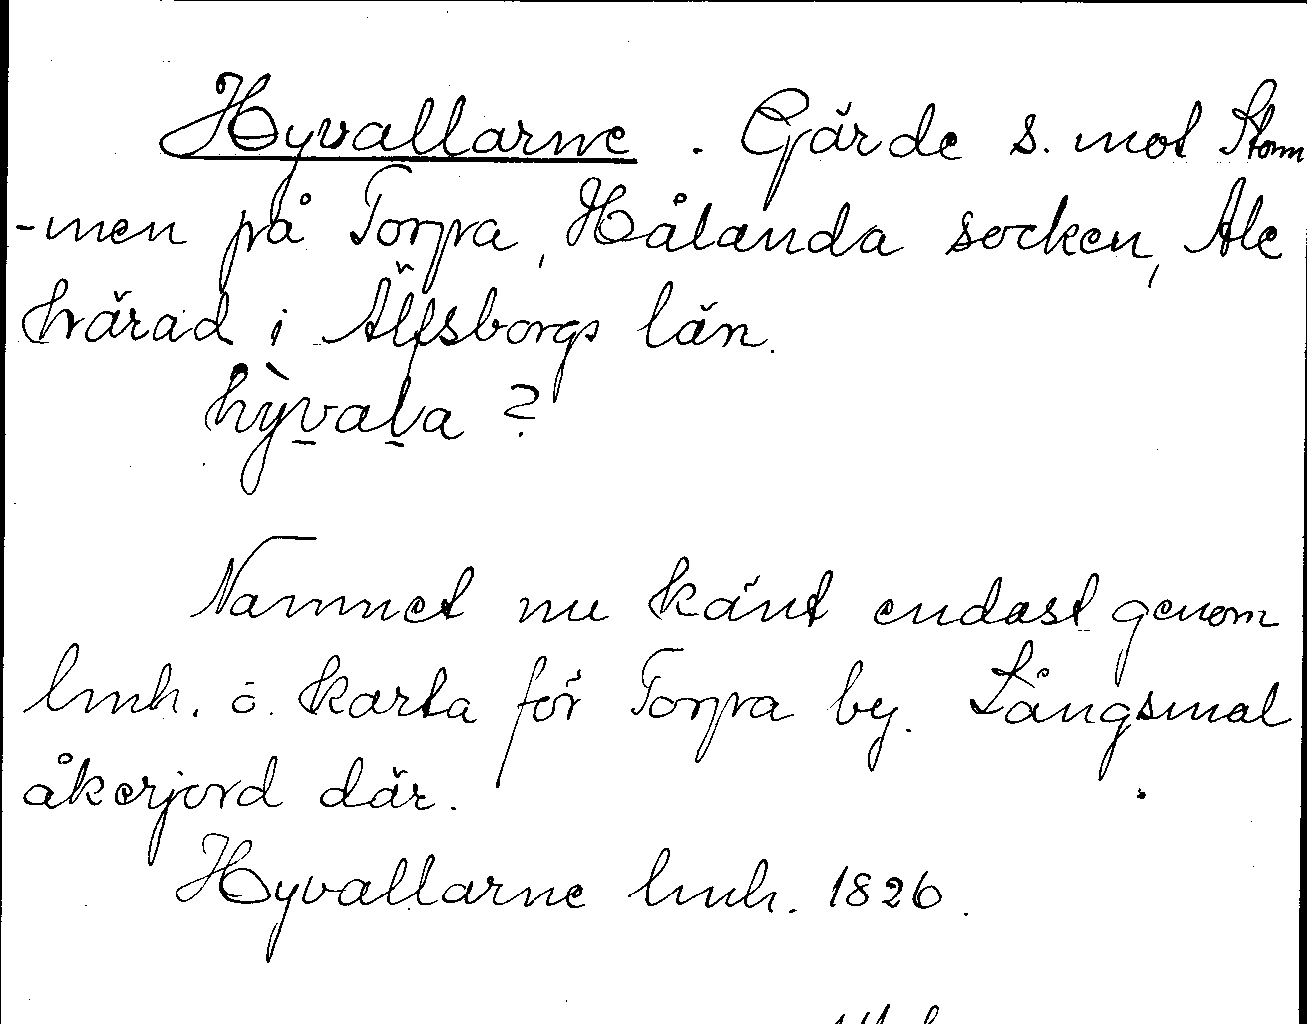 Hyvallarne. Gärde s. mot Stom
-men på Torpa, Hålanda socken, Ale
härad i Älfsborgs län.
hỳvaḻa ?
Namnet nu känt endast genom
lmh. o. karta för Torpa by. Långsmal
åkerjord där.
Hyvallarne lmh. 1826.